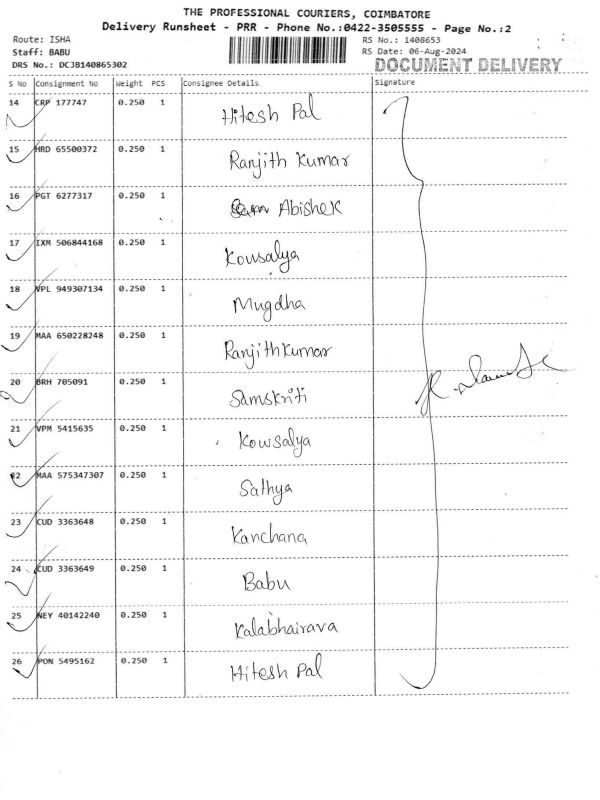 THE PROFESSIONAL COURIERS, COIMBATORE
Delivery Runsheet - PRR - Phone No.:0422-3505555 - Page No.:2
Route: ISHA RS No.: 1408653
Staff: BABU RS Date: 06-Aug-2024
DRS No.: DCJB140865302 DOCUMENT DELIVERY
S No Consignment No Weight PCS Consignee Details Signature
14 CRP 177747 0.250 1 Hitesh Pal
15 HRD 65500372 0.250 1 Ranjith Kumar
16 PGT 6277317 0.250 1 Abishek
17 IXM 506844168 0.250 1 Kousalya
18 VPL 949307134 0.250 1 Mugdha
19 MAA 650228248 0.250 1 Ranjithkumar
20 BRH 705091 0.250 1 Samskriti
21 VPM 5415635 0.250 1 Kowsalya
22 MAA 575347307 0.250 1 Sathya
23 CUD 3363648 0.250 1 Kanchana
24 CUD 3363649 0.250 1 Babu
25 NEY 40142240 0.250 1 Kalabhairava
26 PON 5495162 0.250 1 Hitesh Pal